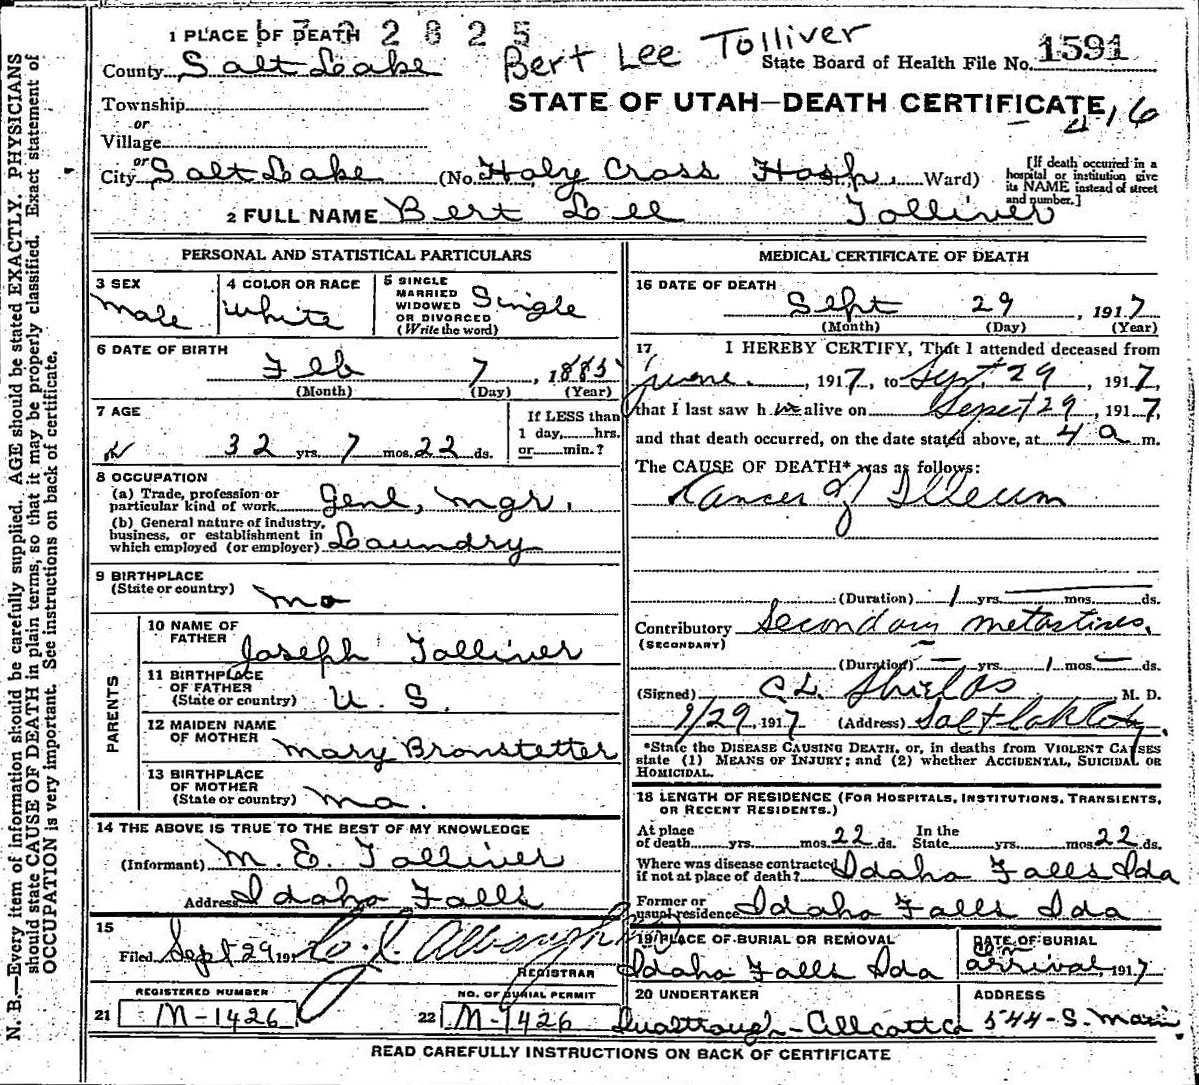 N. B.—Every item of information should be carefully supplied. AGE should be stated EXACTLY. PHYSICIANS
should state CAUSE OF DEATH in plain terms, so that it may be properly classified. Exact statement of
OCCUPATION is very important. See instructions on back of certificate.
1 PLACE OF DEATH 2 8 2 5
Bert Lee Tolliver
County Salt Lake
State Board of Health File No. 1591
Township
STATE OF UTAH—DEATH CERTIFICATE
or
Village
or
City Salt Lake (No. Holy Cross Hosp. Ward)
[If death occurred in a
hospital or institution give
its NAME instead of street
and number.]
2 FULL NAME Bert Lee Tolliver
PERSONAL AND STATISTICAL PARTICULARS
3 SEX
Male
4 COLOR OR RACE
White
5 SINGLE
MARRIED
WIDOWED
OR DIVORCED
(Write the word)
Single
6 DATE OF BIRTH
Feb 7, 1885
(Month) (Day) (Year)
7 AGE
32 yrs. 7 mos. 22 ds.
If LESS than
1 day, hrs.
or min.?
8 OCCUPATION
(a) Trade, profession or
particular kind of work Genl, mgr.
(b) General nature of industry,
business, or establishment in
which employed (or employer) Laundry
9 BIRTHPLACE
(State or country) Mo
PARENTS
10 NAME OF
FATHER
Joseph Tolliver
11 BIRTHPLACE
OF FATHER
(State or country) U. S.
12 MAIDEN NAME
OF MOTHER
Mary Bronstetter
13 BIRTHPLACE
OF MOTHER
(State or country) Mo.
14 THE ABOVE IS TRUE TO THE BEST OF MY KNOWLEDGE
(Informant) M. E. Tolliver
Address Idaho Falls
15
Filed Sept 29 191
REGISTRAR
REGISTERED NUMBER
21 M-1426
NO. OF BURIAL PERMIT
22 M-1426
MEDICAL CERTIFICATE OF DEATH
16 DATE OF DEATH
Sept 29, 1917
(Month) (Day) (Year)
17 I HEREBY CERTIFY, That I attended deceased from
June, 1917, to Sept. 29, 1917,
that I last saw him alive on Sept 29, 1917,
and that death occurred, on the date stated above, at 4 a m.
The CAUSE OF DEATH* was as follows:
Cancer of Illeum
(Duration) 1 yrs. mos. ds.
Contributory Secondary metastises.
(SECONDARY)
(Duration) — yrs. 1 mos. — ds.
(Signed) C L. Shields M. D.
9/29, 1917 (Address) Salt Lake City
*State the DISEASE CAUSING DEATH, or, in deaths from VIOLENT CAUSES
state (1) MEANS OF INJURY; and (2) whether ACCIDENTAL, SUICIDAL OR
HOMICIDAL.
18 LENGTH OF RESIDENCE (FOR HOSPITALS, INSTITUTIONS, TRANSIENTS,
OR RECENT RESIDENTS.)
At place
of death yrs. mos. 22 ds.
In the
State yrs. mos. 22 ds.
Where was disease contracted
if not at place of death? Idaho Falls Ida
Former or
usual residence Idaho Falls Ida
19 PLACE OF BURIAL OR REMOVAL
Idaho Falls Ida
DATE OF BURIAL
on
arrival 1917
20 UNDERTAKER
ADDRESS
544-S. Main
READ CAREFULLY INSTRUCTIONS ON BACK OF CERTIFICATE